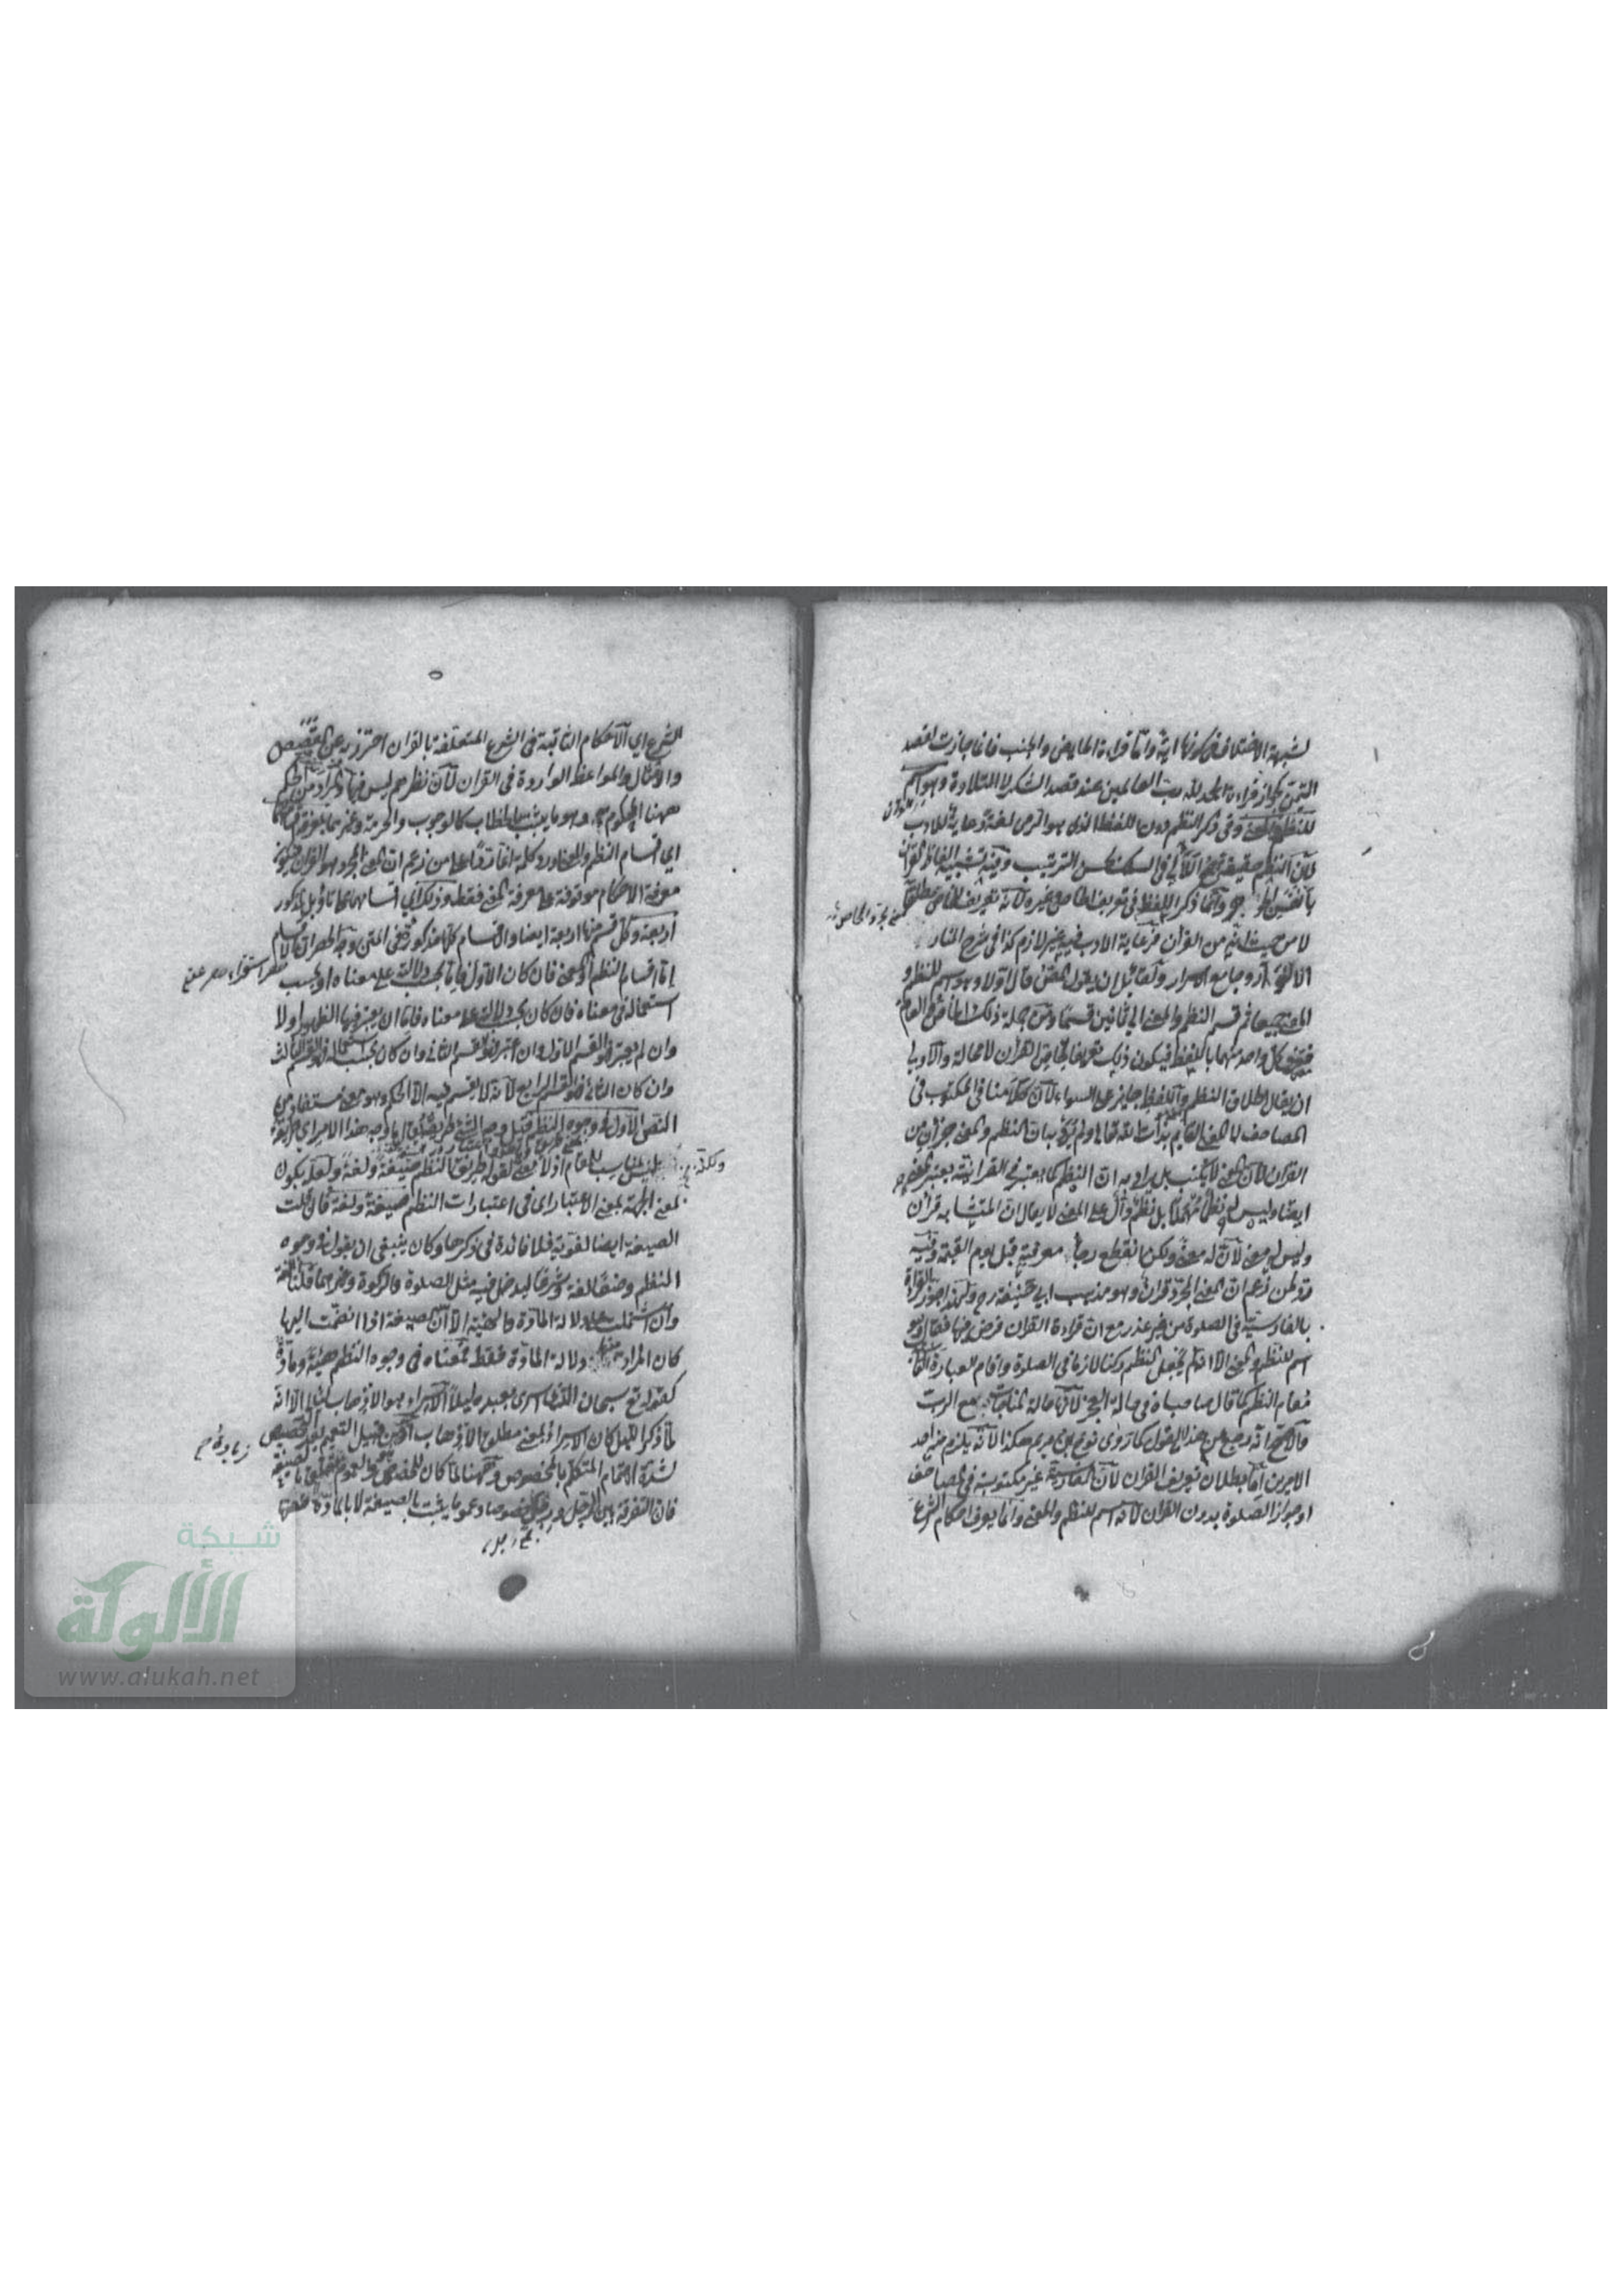 لشبهة الاختلاف في كونها اية واما قراءة الحايض والجنب فانما جازت لقصد
التيمن كجواز قراءة الحمد لله رب العالمين عند قصد الشكر لا التلاوة وهو اسم
للنظم والمعنى وفي ذكر النظم دون اللفظ الذي هو الرمي لغة رعاية للادب
لان النظم حقيقة جمع اللآلي في السلك بحسن الترتيب وفيه تشبيه الفاظ القرآن
بانفس وانما ذكر اللفظ في تعريف الخاص وغيره لانه تعريف للخاص مطلقا
لا من حيث انه من القرآن فرعاية الادب فيه غير لازم كذا في شرح المنار
وجامع الاسرار ولقائل ان يقول المص قال اولا وهو اسم للنظم و
المعنى جميعا ثم قسم النظم والمعنى الى ثمانين قسما ومن جملة ذلك الخاص والعام
كل واحد منهما باللفظ فيكون ذلك تعريفا لخاص القرآن لا محالة والاولى
ان يقال اطلاق النظم واللفظ جايز على السواء لان كلامنا في المكتوب في
المصاحف لا المعنى القايم بذات الله تعالى ولم يرد بيان النظم والمعنى جزآن من
القرآن لان المعنى لا يكتب بل يراد به ان النظم كما يعتبر في القرانية يعتبر المعنى
ايضا وليس نظما مهملا بل نظم دال على المعنى لا يقال ان المتشابه قرآن
وليس له معنى لان له معنى ولكن انقطع رجاء معرفته قبل يوم القيمة وفيه
رد لمن زعم ان المعنى المجرد قرآن وهو مذهب ابي حنيفة رح ولهذا جوز القراءة
بالفارسية في الصلوة من غير عذر مع ان قراءة القران فرض فيها فقال وهو
اسم للنظم والمعنى الا انه لم يجعل النظم ركنا لازما في الصلوة واقام العبارة
مقام النظم كما قال صاحباه في حالة العجز لان حالة المناجاة مع الرب
والاصح انه رجع من هذا القول كما روى نوح بن مريم هكذا لانه يلزم منه احد
الامرين اما بطلان تعريف القران لان الفارسية غير مكتوبة في المصاحف
او جواز الصلوة بدون القران لانه اسم للنظم والمعنى وانما يعرف احكام الشرع
الشرع اي الاحكام الثابتة في الشرع المتعلقة بالقران احترز به عن القصص
والامثال والمواعظ الواردة في القران لان نظرهم ليس فيها والمراد من الحكم
ههنا المحكوم به وهو ما يثبت بالخطاب كالوجوب والحرمة وغيرهما بمعرفة اقسامهما
اي اقسام النظم والمعنى اورد كلمة انما ردا على من زعم ان المعنى المجرد هو القران فيكون
معرفة الاحكام موقوفة على معرفة المعنى فقط وذلك اي اقسامهما بتأويل المذكور
اربعة وكل قسم منها اربعة ايضا والاقسام كلها مذكور في المتن وجه الحصران الاقسام
اما اقسام النظم او المعنى فان كان الاول فاما بحسب دلالته على معناه او بحسب
استعماله في معناه فان كان بحسب دلالته على معناه فاما ان يعتبر فيها الظهور او لا
وان لم يعتبر فهو القسم الاول وان اعتبر فهو القسم الثاني وان كان بحسب استعماله فهو القسم الثالث
وان كان الثاني فهو القسم الرابع لانه لا يقسم فيه الا الحكم وهو معنى مستفاد من
النص الاول في وجوه النظم قيل وجه الشئ طريقه يقال ما وجه هذا الامر اي طريقه
ولكنه ليس بمناسب للمقام اذ لا معنى لقوله طريق النظم صيغة ولغة ولعله يكون
بمعنى الجهة بمعنى الاعتبار اي في اعتبارات النظم صيغة ولغة فان قلت
الصيغة ايضا لغوية فلا فائدة في ذكرها وكان ينبغي ان يقول في وجوه
النظم وضعا لغة وشرعا ليدخل فيه مثل الصلوة والزكوة وغيرهما قلنا اللغة
وان اشتملت على دلالة المادة والهيئة الا ان الصيغة اذا انضمت اليها
كان المراد منها دلالة المادة فقط فمعناه في وجوه النظم هيئة ومادة
كقوله تع سبحان الذي اسرى بعبده ليلا الاسراء هو الاذهاب ليلا الا انه
لما ذكر الليل كان الاسراء بمعنى مطلق الاذهاب او من قبيل التعميم بعد التخصيص
لشدة اهتمام المتكلم بالخصوص وههنا لما كان الخصوص والعموم متعلق بالصيغة
فان التفرقة بين الرجل ورجل خصوصا وعموما يثبت بالصيغة لا بالمادة
زيادة
شبكة
الألوكة
www.alukah.net